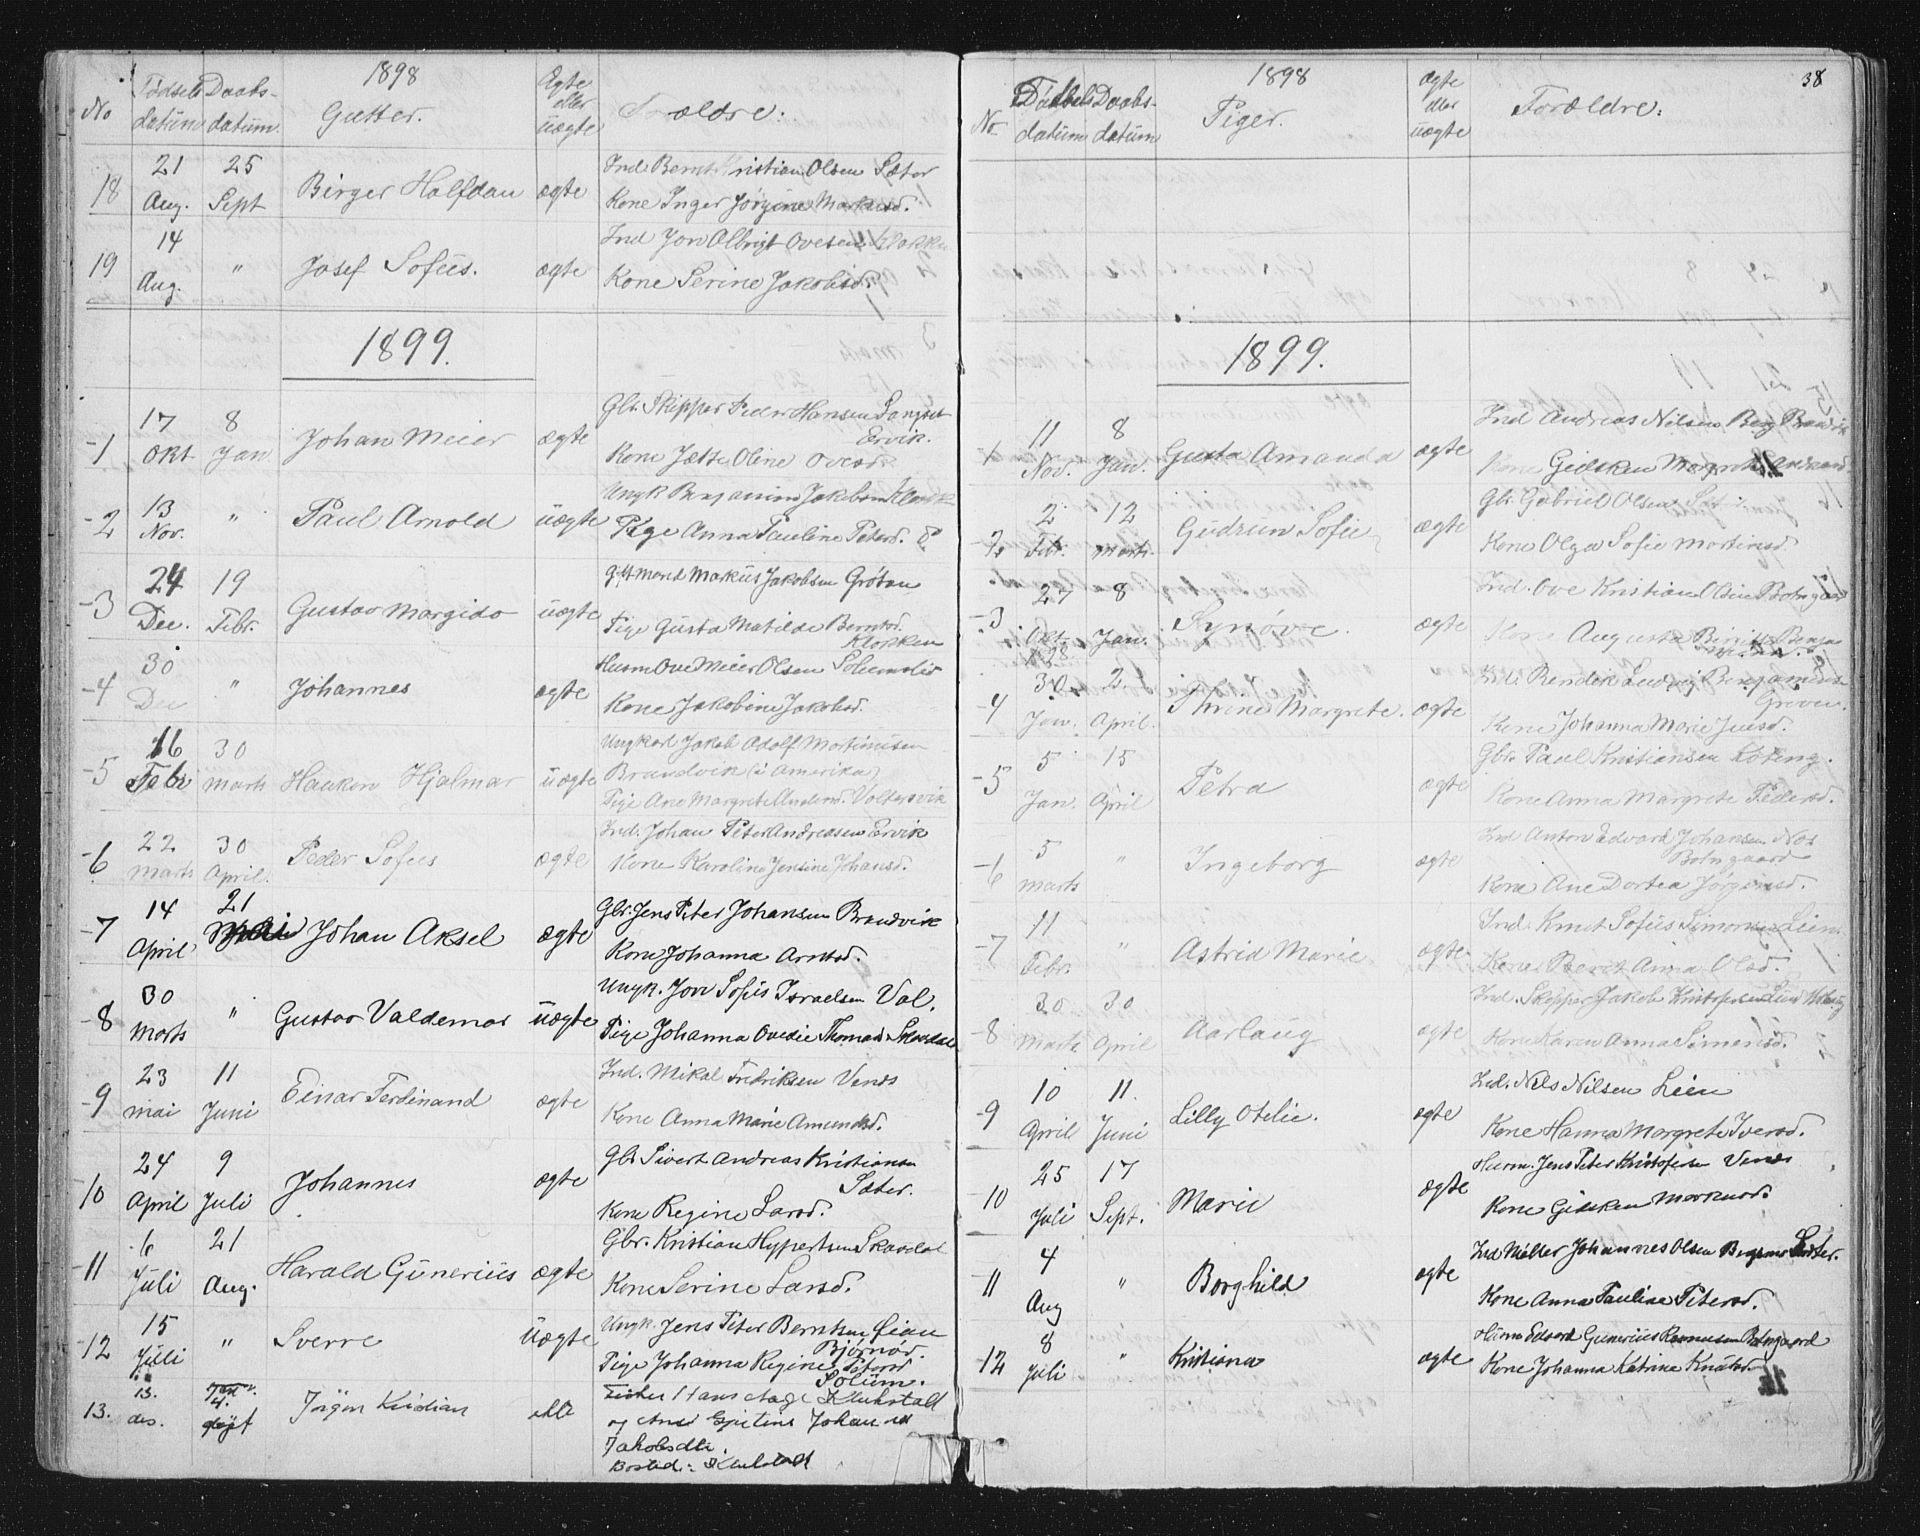 1898
No Födsels datum Daabs- datum. Gutter. Ægte eller uægte Forældre:
18 21 Aug. 25 Sept Birger Halfdan ægte Ind Bernt Kristian Olsen Sæter
Kone Inger Jørgine Markusd.
19 14 Aug. " Josef Sofus. ægte Ind Jon Albrigt Ovesen Klakken
Kone Serine Jakobsd.
1899.
1 17 Okt. 8 Jan Johan Meier ægte Gbr. Skipper Peder Hansen
Ervik.
Kone Jette Oline Ovesd.
2 13 Nov. " Paul Arnold uægte Ungk Benjamin Jakobsen
Pige Anna Pauline Petersd.
3 24 Dec. 19 Febr. Gustav Margido uægte Gift mand Markus Jakobsen Grötan
Pige Gusta Matilde Berntsd.
Klakken
4 30 Dec " Johannes ægte Husm Ove Meier Olsen Solumslid
Kone Jakobine Jakobsd.
5 16 Febr 30 Marts Haakon Hjalmar uægte Ungkarl Jakob Adolf Martinusen
Brandvik (i Amerika)
Pige Ane Margrete Andersd. Valtersvik
6 22 Marts 30 April. Peder Sofus ægte Ind. Johan Peter Andreasen Ervik
Kone Karoline Jensine Johansd.
7 14 April 21 Mai Johan Aksel ægte Gbr. Jens Peter Johansen Brandvik
Kone Johanna Arntsd.
8 30 Marts " Gustav Valdemar uægte Ungk. Jon Sofus Israelsen Val.
Pige Johanna Ovedie Thomasd. Skavdal
9 23 mai 11 Juni Einar Ferdinand ægte Ind. Mikal Fredriksen Venes
Kone Anna Marie Amundsd.
10 24 April 9 Juli Johannes ægte Gbr Sivert Andreas Kristiansen
Sæter.
Kone Regine Larsd.
11 6 Juli 21 Aug. Harald Gunerius ægte Gbr. Kristian Hypertsen Skavdal
Kone Serine Larsd.
12 15 Juli " Sverre uægte Ungk. Jens Peter Berntsen Øian
Bjørnør.
Pige Johanna Regine Petersd
Solum.
13. 13. des. døpt Jörgen Kristian ekte Fisker Hans Aage
og Johan
Jakobsdtr.
Bosted:
38
1898
No. Födsels datum Daabs- datum Piger. ægte eller uægte Forældre:
1899.
1 11 Nov. 8 Jan. Gusta Amanda ægte Ind Andreas Nilsen Berg Brandvik
Kone Gidsken Margrete
2 2 Febr. 12 Marts. Gudrun Sofie ægte Gbr. Gabriel Olsen
Kone Olga Sofie Martinsd.
3 27 Okt. 8 Jan. Synøve. ægte Ind. Ove Kristian Olsen Botngaard
Kone Augusta Birgitte
4 30 Jan. 2 April. Thrine Margrete. ægte Ind. Bendik Ludvig Benjaminsen
Greven.
Kone Johanna Marie Jensd.
5 5 Jan. 15 April Petra ægte Gbr. Paul Kristiansen Loteng.
Kone Anna Margrete Pedersd.
6 5 marts " Ingeborg ægte Ind Anton Edvard Johansen
Botngaard
Kone Ane Dortea Jørginsd.
7 11 Febr. " Astrid Marie ægte Ind. Knut Sofus Simonsen Lien.
Kone Berit Anna Olsd.
8 30 Marts 30 April Aarlaug ægte Ind. Skipper Jakob Kristofersen
Kone Karen Anna Simensd.
9 10 April 11. Juni Lilly Otelie. ægte Ind. Nils Nilsen Lien
Kone Hanna Margrete Iversd.
10 25 Juli 17 Sept. Marie ægte Husm. Jens Peter Kristofersen Venes
Kone Gidsken Markusd.
11 4 Aug " Borghild ægte Ind Møller Johannes Olsen Sæter.
Kone Anna Pauline Petersd.
12 8 Juli " Kristiana ægte Husm Edvard Gunerius Rasmusen Botngaard
Kone Johanna Katrine Knutsd.